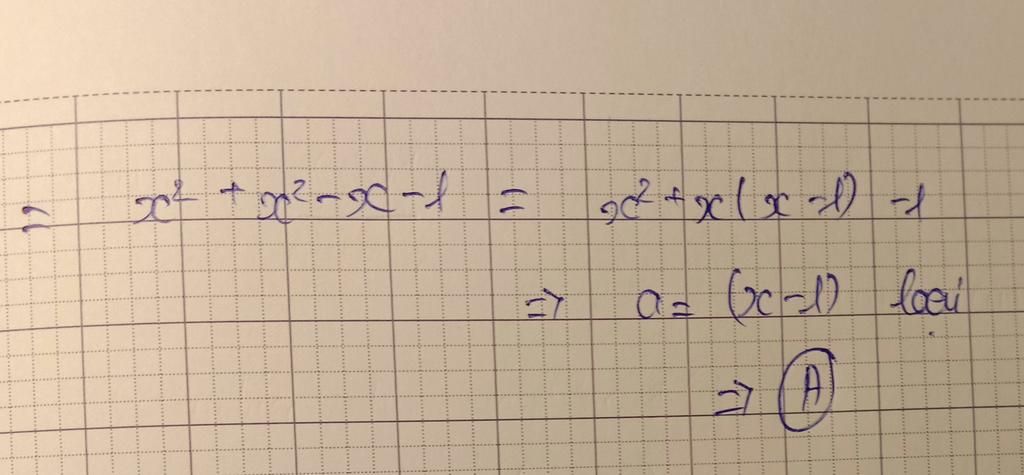 = x² + x² - x - 1 = x² + x(x - 1) - 1
=> a = (x - 1) loại
=> A